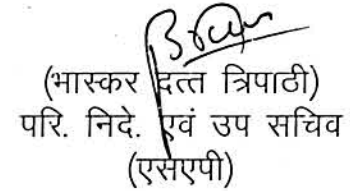 (भास्कर दत्त त्रिपाठी)
परि. निदे. एवं उप सचिव
(एसएपी)